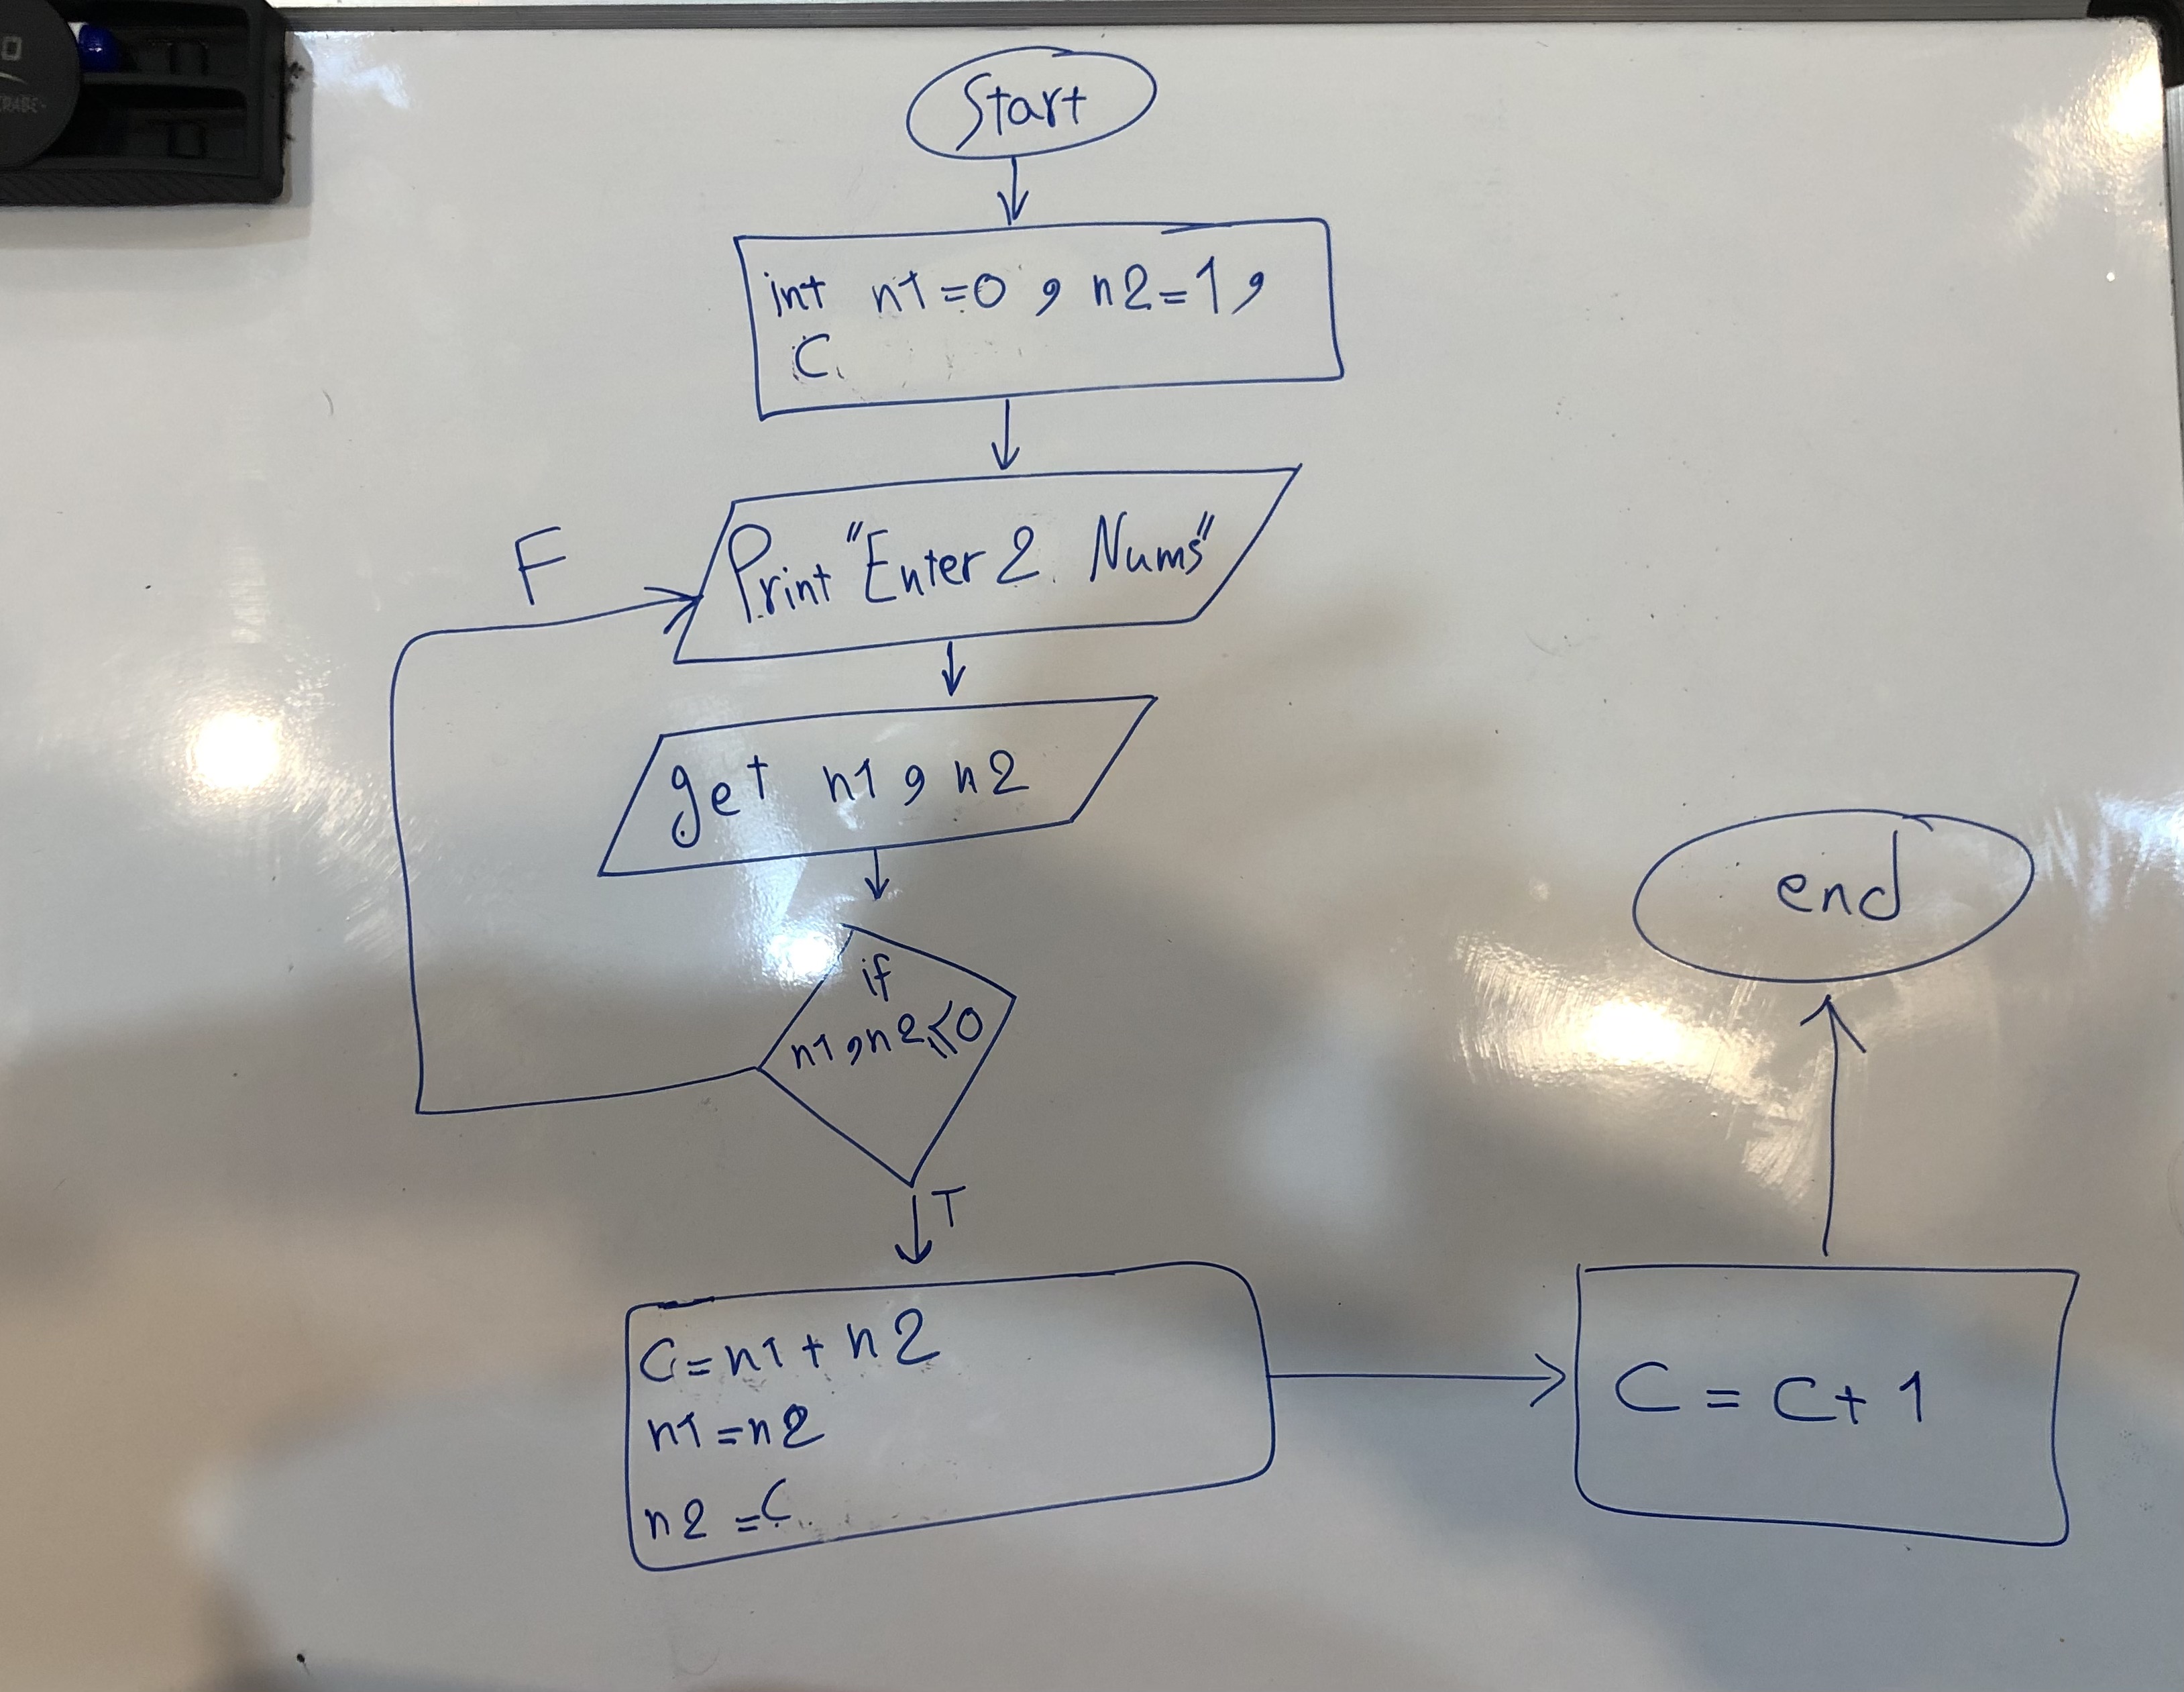 Start
int n1=0, n2=1,
C
Print "Enter 2 Nums"
F
get n1, n2
if
n1,n2≤0
T
C=n1+n2
n1=n2
n2=C
C=C+1
end